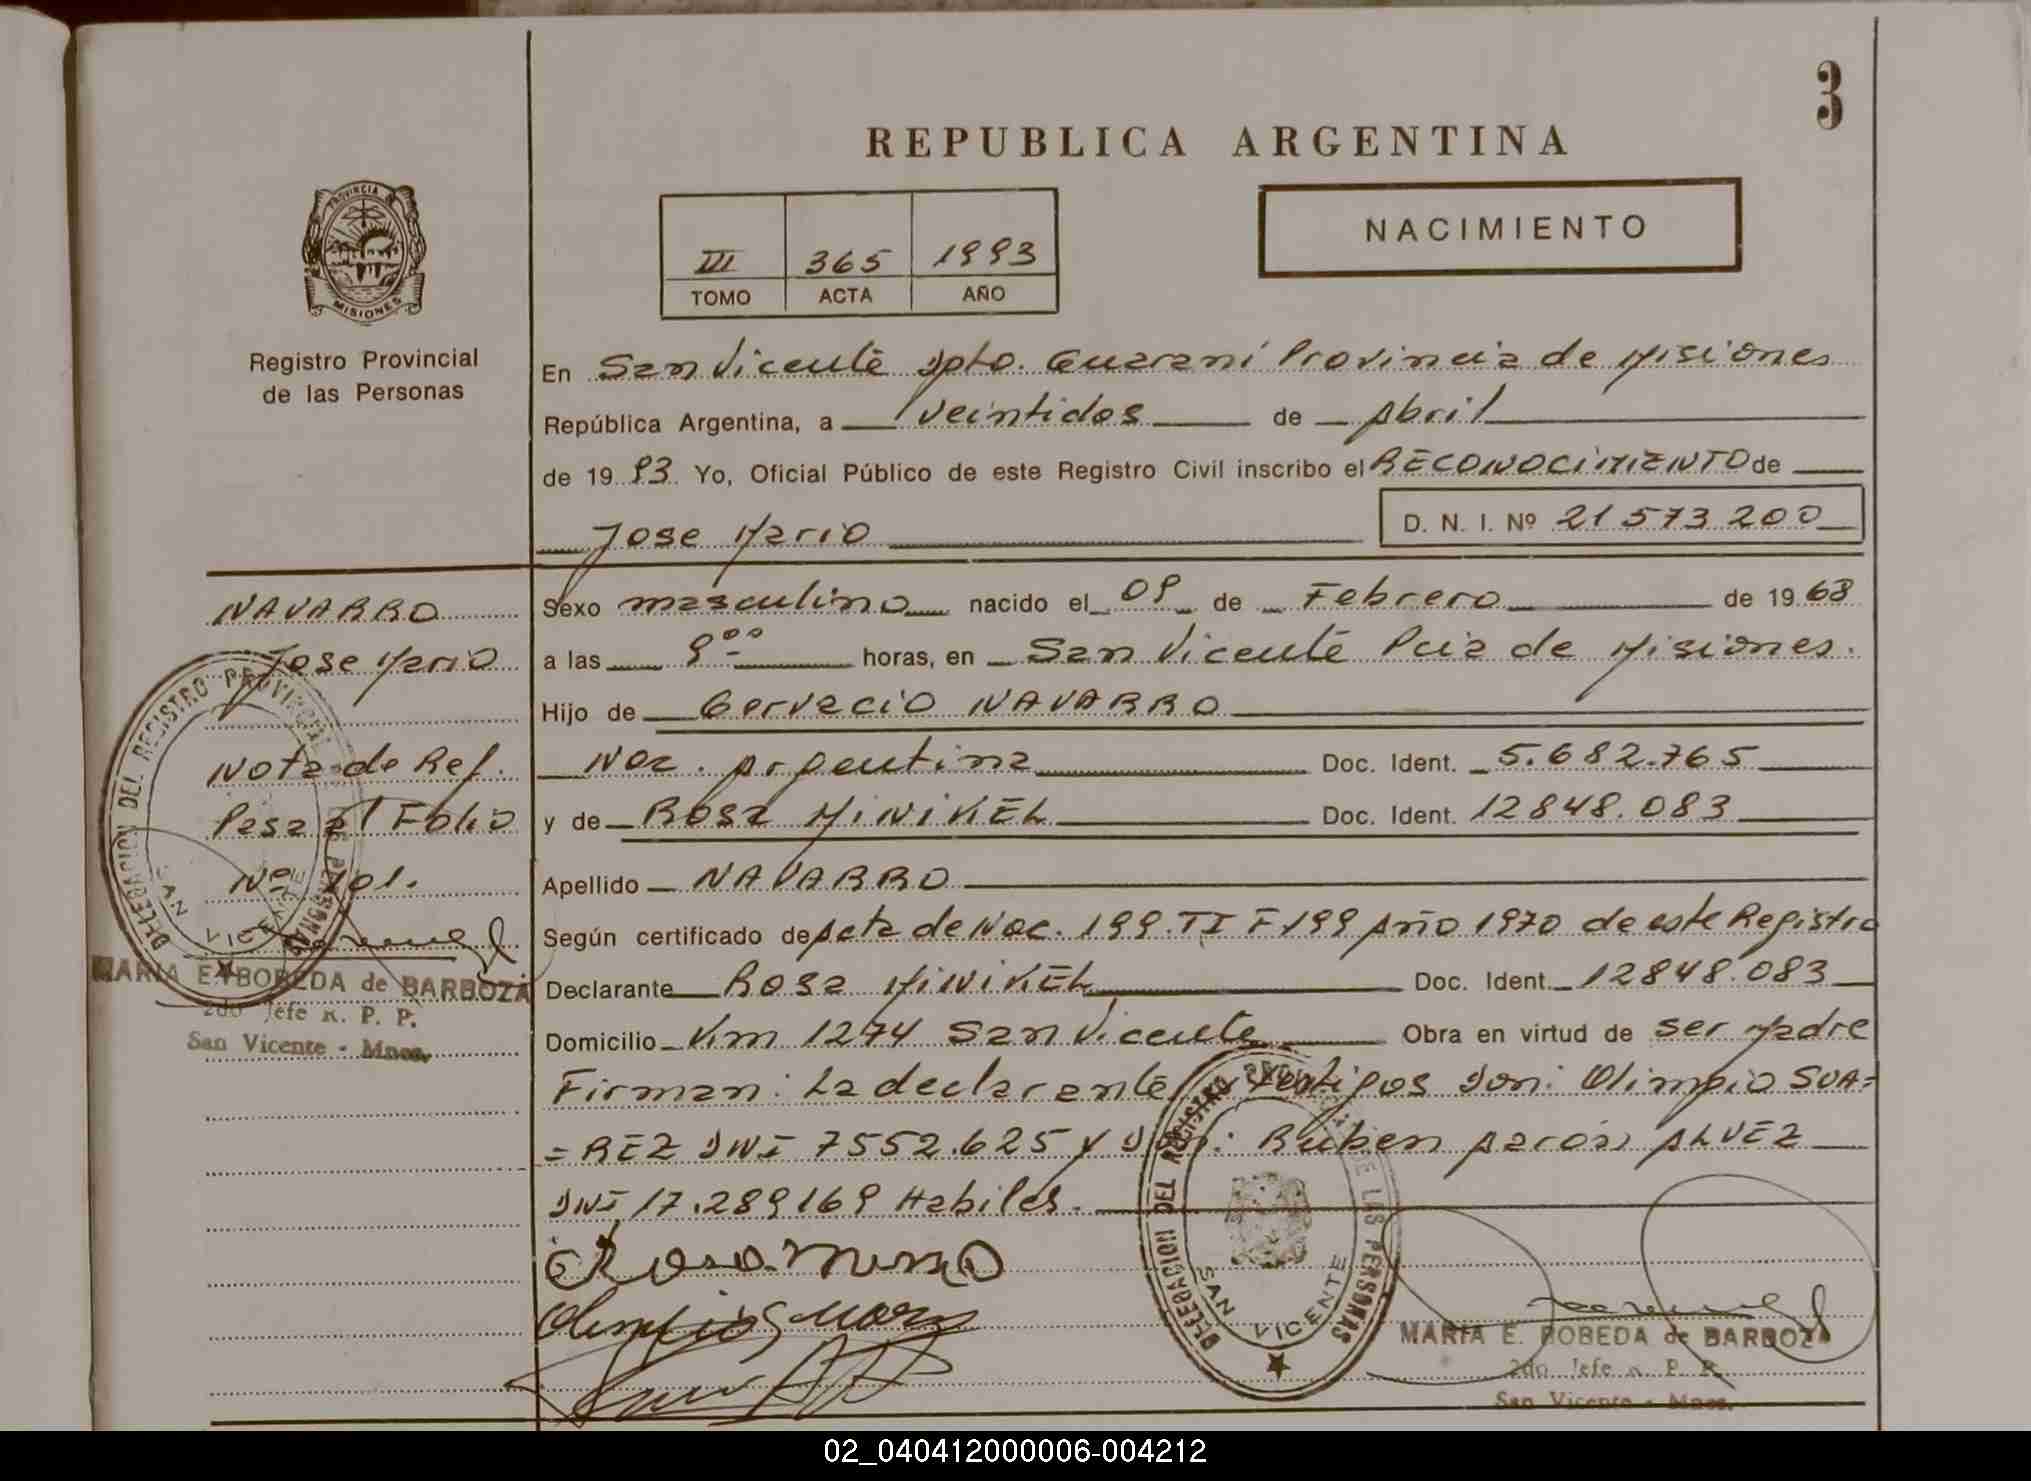 3
REPUBLICA ARGENTINA
NACIMIENTO
PROVINCIA
MISIONES
III 365 1993
TOMO ACTA AÑO
Registro Provincial
de las Personas
En San Vicente Dpto. Guaraní Provincia de Misiones
República Argentina, a veintidos de Abril
de 1993 Yo, Oficial Público de este Registro Civil inscribo el RECONOCIMIENTO de
Jose Mario D. N. I. Nº 21573200
NAVARRO
Jose Mario
Nota de Ref.
Pasa al Folio
Nº 201.
MARIA E. BOBEDA de BARBOZA
2do Jefe R. P. P.
San Vicente - Mnes.
DELEGACION DEL REGISTRO PROVINCIAL DE LAS PERSONAS
SAN VICENTE
Sexo masculino nacido el 09 de Febrero de 1968
a las 9°° horas, en San Vicente Pcia de Misiones.
Hijo de Gervacio NAVARRO
Nac. Argentina Doc. Ident. 5.682.765
y de Rosa MINIKEL Doc. Ident. 12848.083
Apellido NAVARRO
Según certificado de Acta de Nac. 199. TI F 199 Año 1970 de este Registro
Declarante Rosa MINIKEL Doc. Ident. 12848.083
Domicilio Km 1274 San Vicente Obra en virtud de ser Madre
Firman: La declarante y Testigos Don: Olimpio SUA=
=REZ DNI 7552.625 y Don: Ruben Aarón ALVEZ
DNI 17.289169 Habiles.
DELEGACION DEL REGISTRO PROVINCIAL DE LAS PERSONAS
SAN VICENTE
MARIA E. BOBEDA de BARBOZA
2do Jefe R. P. P.
San Vicente - Mnes.
02_040412000006-004212